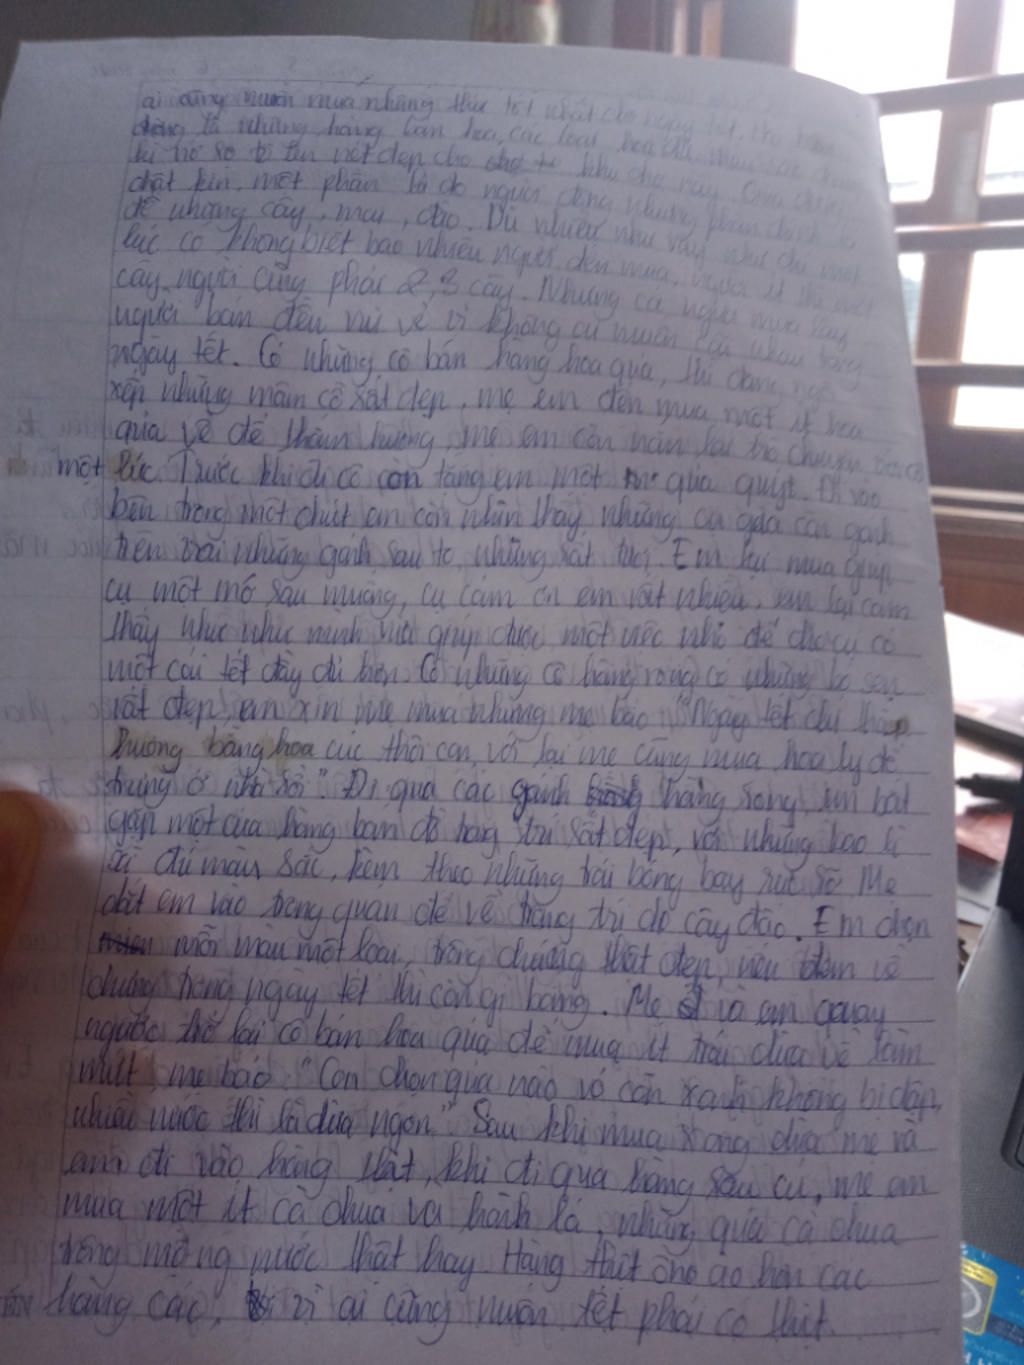 ai cũng muốn mua những thứ tốt nhất cho ngày tết.
đông là những hàng bán hoa, các loại hoa đủ màu sắc
kì nở sơ tô lên nét đẹp cho khu chợ này.
chật kín, một phần là do người đông nhưng phần chính là
để những cây, mai, đào. Dù nhiều như vậy như chỉ một
lúc có không biết bao nhiêu người đến mua, người ít thì một
cây, người cũng phải 2, 3 cây. Nhưng cả người mua lẫn
người bán đều vui vẻ vì không ai muốn cãi nhau trong
ngày tết. Có những cô bán hàng hoa quả, thì đang ngồi
xếp những mâm cỗ rất đẹp, mẹ em đến mua một ít hoa
quả về để thắm hương, mẹ em còn nán lại trò chuyện với cô
một lúc. Trước khi đi cô con tặng em một quả quýt. Đi vào
bên trong một chút em còn nhìn thấy những cụ già còn gánh
trên vai những gánh sau to, những rất tươi. Em lại mua giúp
cụ một mớ sau muống, cụ cảm ơn em rất nhiều, em lại cảm
thấy như như mình vừa giúp được một việc nhỏ để cho cụ có
một cái tết đầy đủ hơn. Có những cô hàng rong có những bó sen
rất đẹp, em xin mẹ mua nhưng mẹ bảo "Ngày tết chỉ thắp
hương bằng hoa cúc thôi con, với lại mẹ cũng mua hoa ly để
trưng ở nhà rồi". Đi qua các gánh hàng song, em bắt
gặp một cửa hàng bán đồ trang trí rất đẹp, với những bao lì
xì đủ màu sắc, kèm theo những trái bóng bay rực rỡ. Mẹ
dắt em vào trong quán để về trang trí do cây đào. Em chọn
mỗi màu một loại, trông chúng thật đẹp, nếu đem về
chưng trong ngày tết thì còn gì bằng. Mẹ và em quay
ngược trở lại cô bán hoa quả để mua ít trái dừa về làm
mứt, mẹ bảo: "Con chọn quả nào vỏ còn xanh không bị dập,
nhiều nước thì là dừa ngon" Sau khi mua xong dừa mẹ và
em đi vào hàng thịt, khi đi qua hàng sau củ, mẹ em
mua một ít cà chua và hành lá, những quả cà chua
trông mỏng nước thật hay. Hàng thịt ồn ào hơn các
hàng các, vì ai cũng muốn tết phải có thịt.